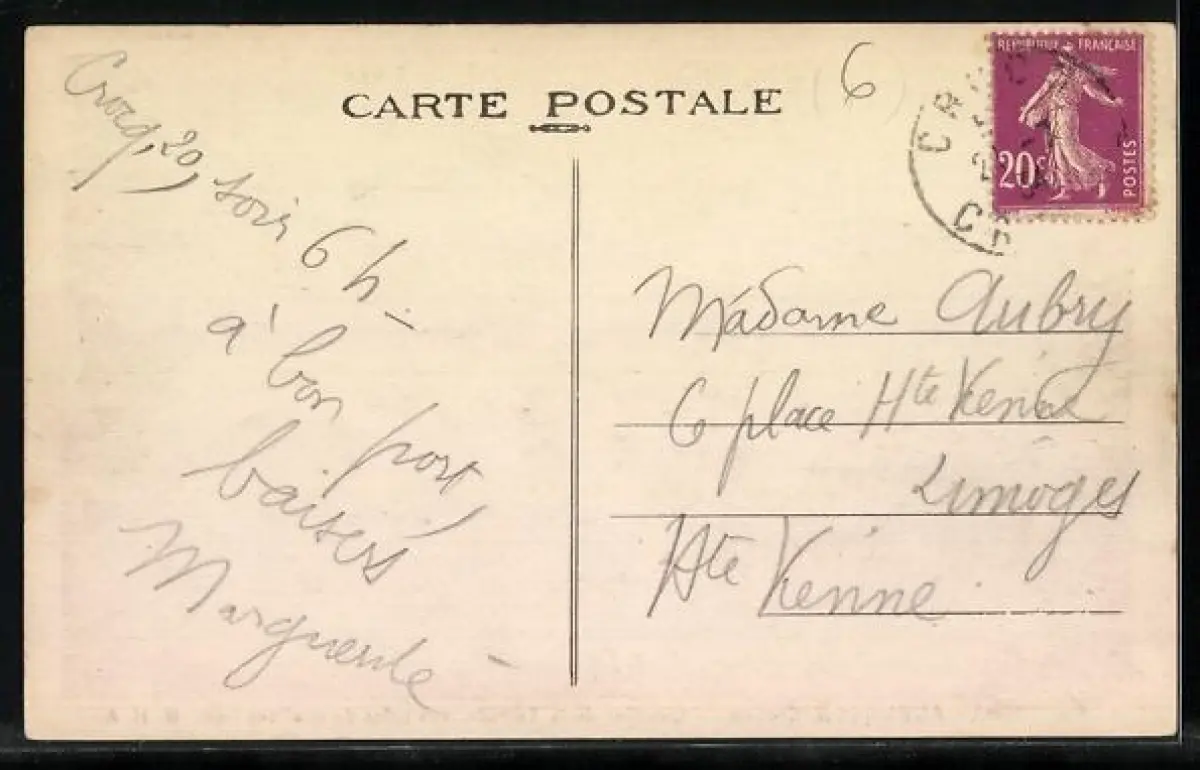 CARTE POSTALE
6
RÉPUBLIQUE FRANÇAISE
20c
POSTES
CR
CR
Crocq, 20, soir 6 h -
à bon port,
baisers
Marguerite -
Madame Aubry
6 place Hte Vienne
Limoges
Hte Vienne